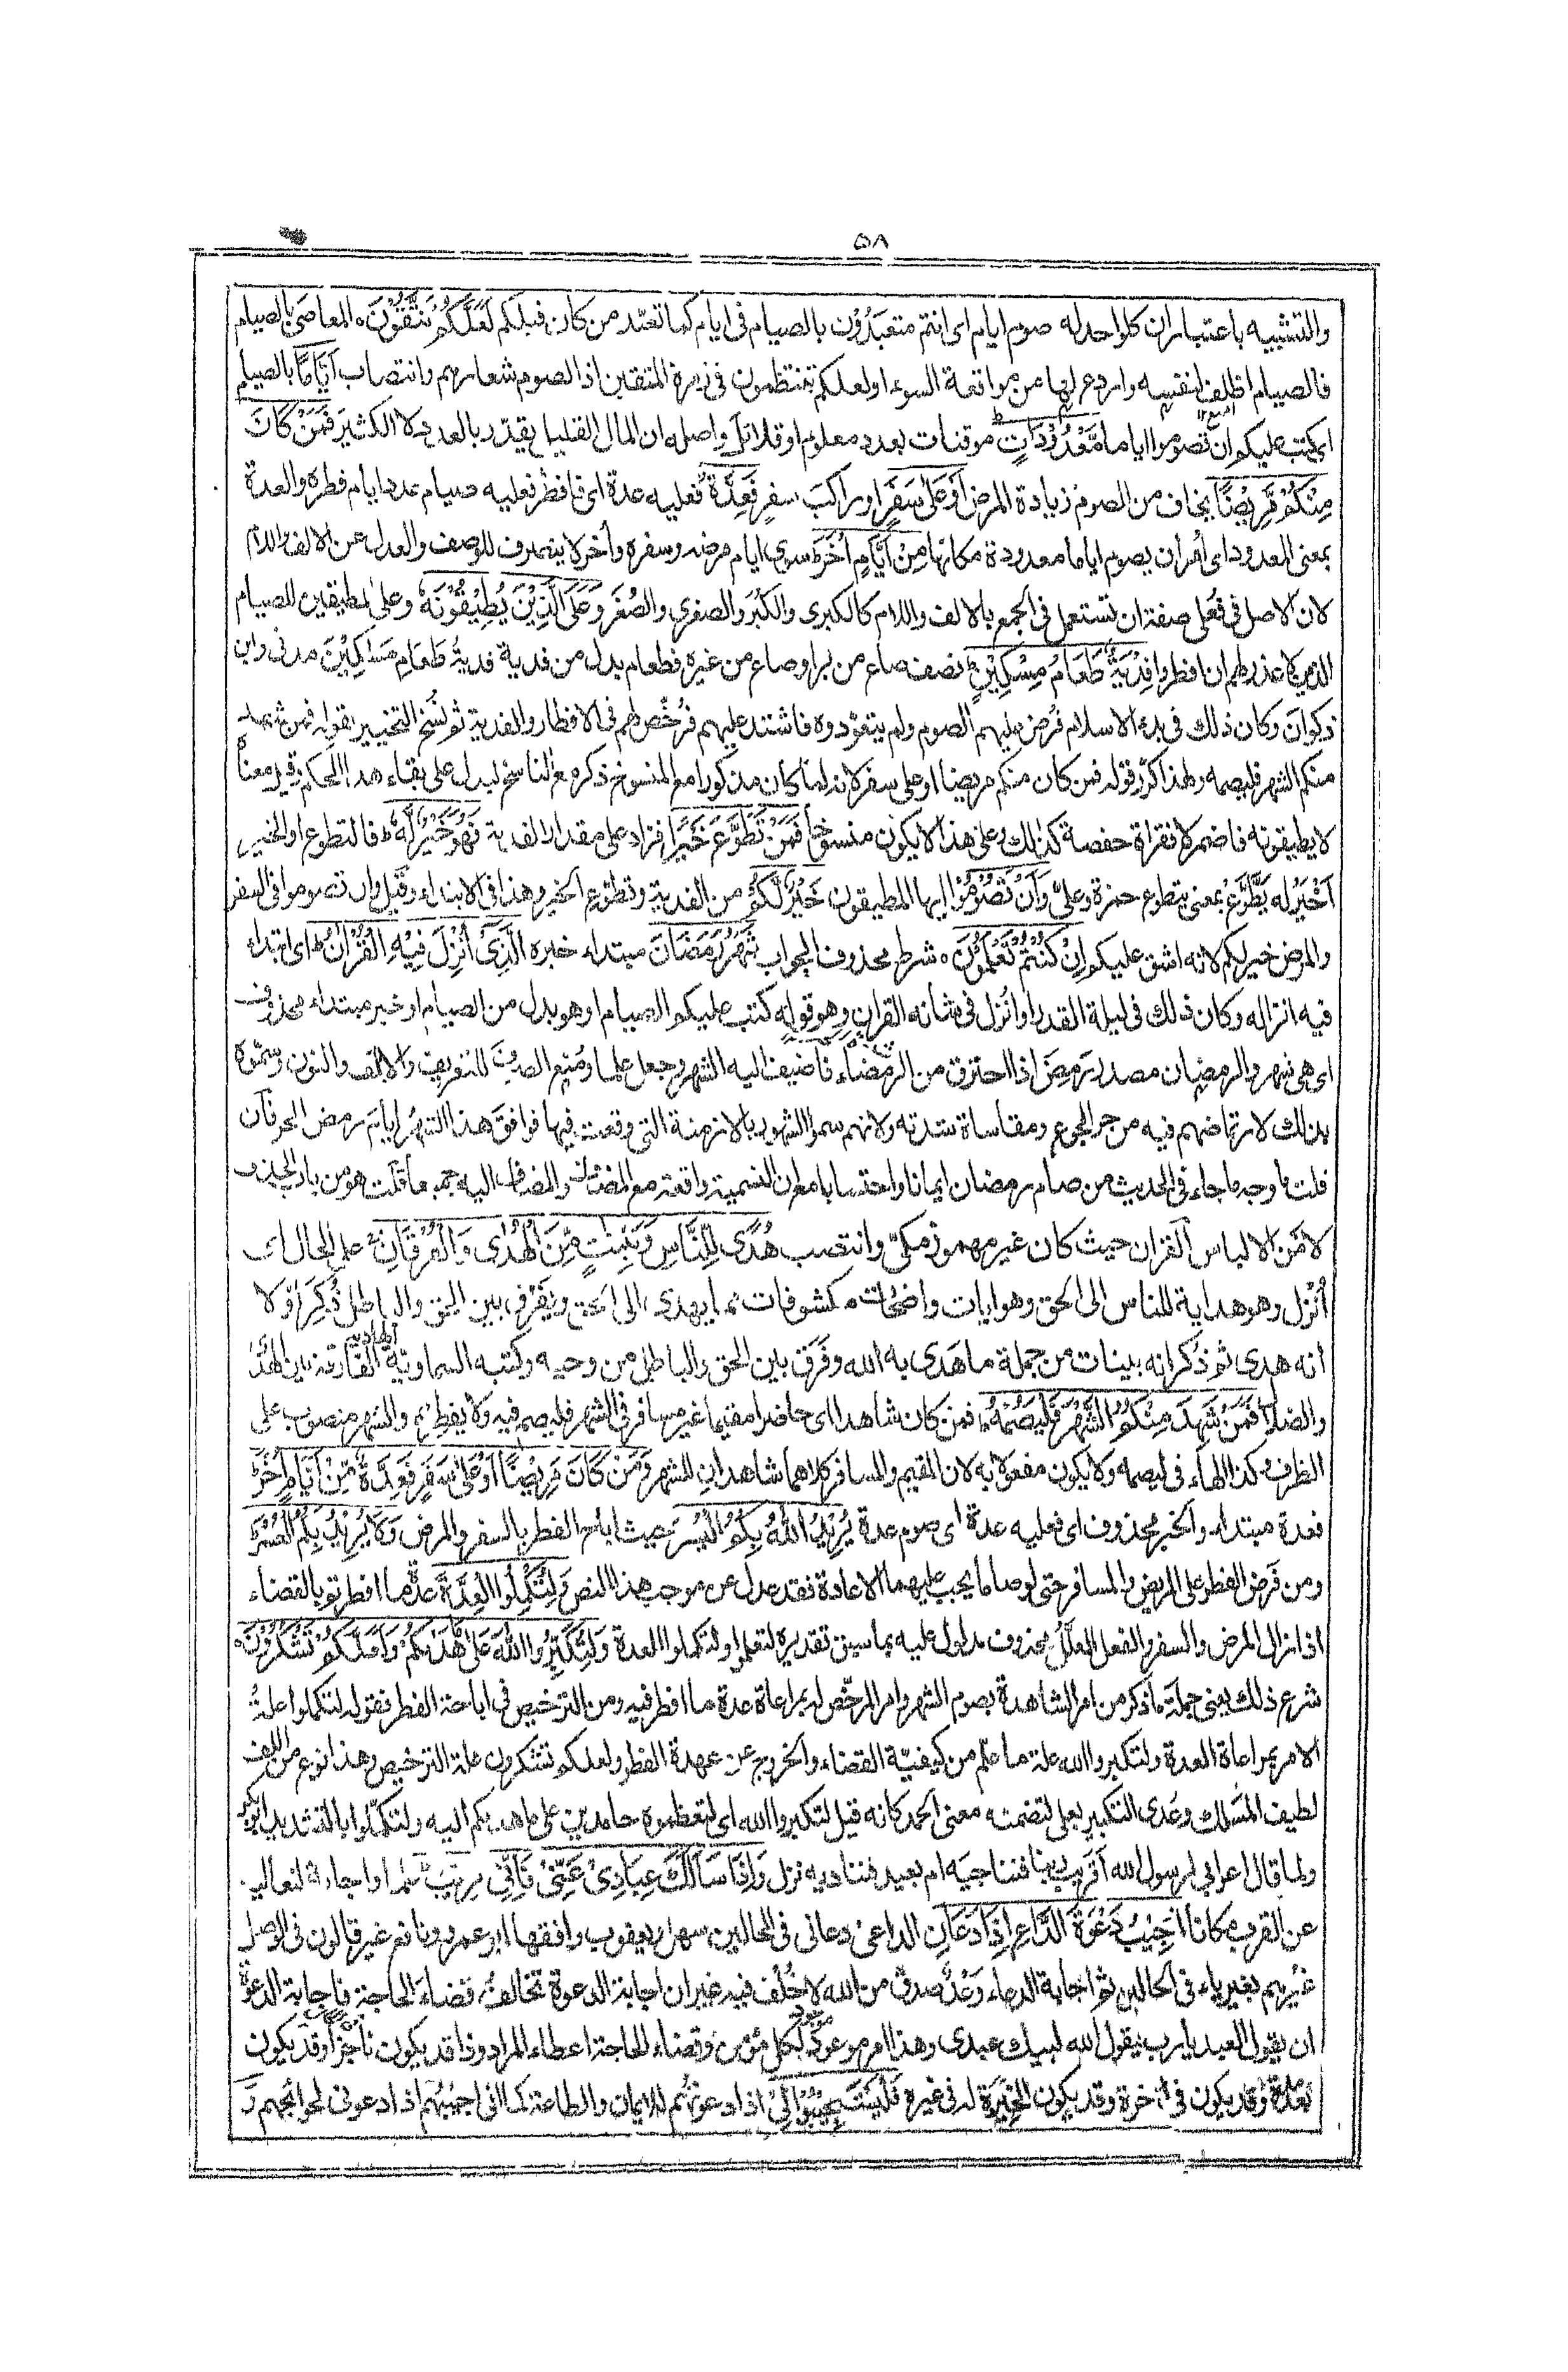 ٥٨
والتشبيه باعتباران كلواحدله صوم ايام اى انتم متعبَّدُوْن بالصيام فى ايام كما تعبّد من كان قبلكم لَعَلَّكُمْ تَتَّقُوْنَ ه المعاصَى بالصيام
فالصيام اظلف لنفسه واردع لها من مواقعة السوء اولعلكم تنتظمون فى زمرة المتقين اذ الصوم شعارهم وانتصاب اَيَّامًا بالصيام
اى كتب عليكم ان تصوموا اياما مَّعْدُوْدَاتٍ ط موقتات بعدد معلوم او قلائل واصله ان المال القليل يقدّر بالعدد لا الكثير فَمَنْ كَانَ
مِنْكُمْ مَّرِيْضًا يخاف من الصوم زيادة المرض اَوْعَلٰى سَفَرٍ او راكب سفرٍ فَعِدَّةٌ فعليه عدة اى فافطر فعليه صيام عدد ايام فطره والعدة
بمعنى المعدود اى اُمران يصوم اياما معدودة مكانها مِنْ اَيَّامٍ اُخَرَ ط سوى ايام مرضه وسفره وأخر لا ينصرف للوصف والعدل عن الالف واللام
لان الاصل فى فعلى صفة ان تستعمل فى الجمع بالالف واللام كالكبرى والكُبَر والصغرى والصُغَر وَعَلَى الَّذِيْنَ يُطِيْقُوْنَهٗ وعلى المطيقين للصيام
الذين لا عذر لهم ان افطروا فِدْيَةٌ طَعَامُ مِسْكِيْنٍ ط نصف صاع من بر او صاع من غيره فطعام بدل من فدية فديةُ طَعَامِ مَسَاكِيْنَ مدنى وابن
ذكوان وكان ذلك فى بدء الاسلام فُرض عليهم الصوم ولم يتعوّدوه فاشتد عليهم فرُخّص لهم فى الافطار والفدية ثم نُسخ التخيير بقوله فمن شهد
منكم الشهر فليصمه ولهذا كرّر قوله فمن كان منكم مريضا او على سفر لانه لما كان مذكورا مع المنسوخ ذكر مع الناسخ ليدل على بقاء هذا الحكم وقيل معناه
لا يطيقونه فاضمر لا فقراة حفصة كذلك وعلى هذا لا يكون منسوخا فَمَنْ تَطَوَّعَ خَيْرًا فزاد على مقدار الفدية فَهُوَ خَيْرٌ لَّهٗ ط فالتطوع او الخير
اَخْيَرُ له يَطَّوَّعْ بمعنى يتطوع حمزة وعلىّ وَاَنْ تَصُوْمُوْا ايها المطيقون خَيْرٌ لَّكُمْ من الفدية وتطوّع الخير وهذا فى الابتداء وقيل وان تصوموا فى السفر
والمرض خير لكم لانه اشق عليكم اِنْ كُنْتُمْ تَعْلَمُوْنَ ه شرط محذوف الجواب شَهْرُ رَمَضَانَ مبتداء خبره الَّذِىْ اُنْزِلَ فِيْهِ الْقُرْاٰنُ ط اى ابتداء
فيه انزاله وكان ذلك فى ليلة القدر او اُنزل فى شأنه القران وهو قوله كتب عليكم الصيام او هو بدل من الصيام او خبر مبتداء محذوف
اى هى شهر والرمضان مصدر رَمِضَ اذا احترق من الرمضاء فاضيف اليه الشهر وجعل علما ومُنع الصرف للتعريف والالف والنون وسمّوه
بذلك لارتماضهم فيه من حر الجوع ومقاساة شدته ولانهم سموا الشهور بالازمنة التى وقعت فيها فوافق هذا الشهر ايام رمض الحر فان
قلت ما وجه ما جاء فى الحديث من صام رمضان ايمانا واحتسابا مع ان التسمية واقعة مع المضاف والمضاف اليه جميعا قلت هو من باب الحذف
لامن الالباس القران حيث كان غير مهموز مكىّ وانتصب هُدًى لِّلنَّاسِ وَبَيِّنٰتٍ مِّنَ الْهُدٰى وَالْفُرْقَانِ ج على الحال اى
اُنْزل وهو هداية للناس الى الحق وهو ايات واضحات مكشوفات مما يهدى الى الحق ويفرّق بين الحق والباطل ذُكِرَ اوّلا
انه هدى ثم ذكر انه بينات من جملة ما هَدى به الله وفَرَق بين الحق والباطل من وحيه وكتبه السماوية الهادية الفارقة بين الهدى
والضلال فَمَنْ شَهِدَ مِنْكُمُ الشَّهْرَ فَلْيَصُمْهُ ط فمن كان شاهدا اى حاضرا مقيما غير مسافر فى الشهر فليصم فيه ولا يفطر والشهر منصوب على
الظرف وكذا الهاء فى ليصمه ولا يكون مفعولا به لان المقيم والمسافر كلاهما شاهدان للشهر وَمَنْ كَانَ مَرِيْضًا اَوْعَلٰى سَفَرٍ فَعِدَّةٌ مِّنْ اَيَّامٍ اُخَرَ ط
فعدة مبتداء والخبر محذوف اى فعليه عدة اى صوم عدة يُرِيْدُ اللّٰهُ بِكُمُ الْيُسْرَ حيث اباح الفطر بالسفر والمرض وَلَا يُرِيْدُ بِكُمُ الْعُسْرَ ط
ومن فَرَض الفطر على المريض والمسافر حتى لو صاما يجب عليهما الاعادة فقد عدل عن موجب هذا النص وَلِتُكْمِلُوا الْعِدَّةَ عدة ما افطرتم بالقضاء
اذا زال المرض والسفر والفعل المعلَّل محذوف مدلول عليه بما سبق تقديره لتعلموا ولتكملوا العدة وَلِتُكَبِّرُوا اللّٰهَ عَلٰى مَا هَدٰىكُمْ وَلَعَلَّكُمْ تَشْكُرُوْنَ ه
شرع ذلك يعنى جملة ما ذكر من امر الشاهدة بصوم الشهر وامر المرخّص له بمراعاة عدة ما افطر فيه ومن الترخيص فى اباحة الفطر فقوله لتكملوا علةُ
الامر بمراعاة العدة ولتكبروا الله علة ما علّم من كيفيّة القضاء والخروج عن عهدة الفطر ولعلكم تشكرون علة الترخيص وهذا نوع من اللف
لطيف المسلك وعدى التكبير بعلى لتضمنه معنى الحمد كانه قيل لتكبروا الله اى لتعظموه حامدين على ما هداكم اليه ولتكمّلوا بالتشديد ابوبكر
ولما قال اعرابى لرسول الله أقريب ربنا فنناجيَه ام بعيد فنناديه نزل وَاِذَا سَاَلَكَ عِبَادِىْ عَنِّىْ فَاِنِّىْ قَرِيْبٌ ط علما واجابة لتعاليه
عن القرب مكانا اُجِيْبُ دَعْوَةَ الدَّاعِ اِذَا دَعَانِ الداعى دعانى فى الحالين سهل ويعقوب وافقهما ابو عمرو ونافع غير قالون فى الوصل
غيرُهم بغير ياء فى الحالين ثم اجابة الدعاء وَعْدُ صدق من الله لا خُلْف فيه غير ان اجابة الدعوة تخالف قضاءَ الحاجة فاجابة الدعوة
ان يقول العبد يا رب فيقول الله لبيك عبدى وهذا امر موعود موجود لكل مؤمن وقضاء الحاجة اعطاء المراد وذا قد يكون ناجزًا وقد يكون
بعد مدة وقد يكون فى الاخرة وقد يكون الخِيَرَة له فى غيره فَلْيَسْتَجِيْبُوْا لِىْ اذا دعوتُهم للايمان والطاعة كما انى اجيبُهم اذا دعونى لحوائجهم وَ